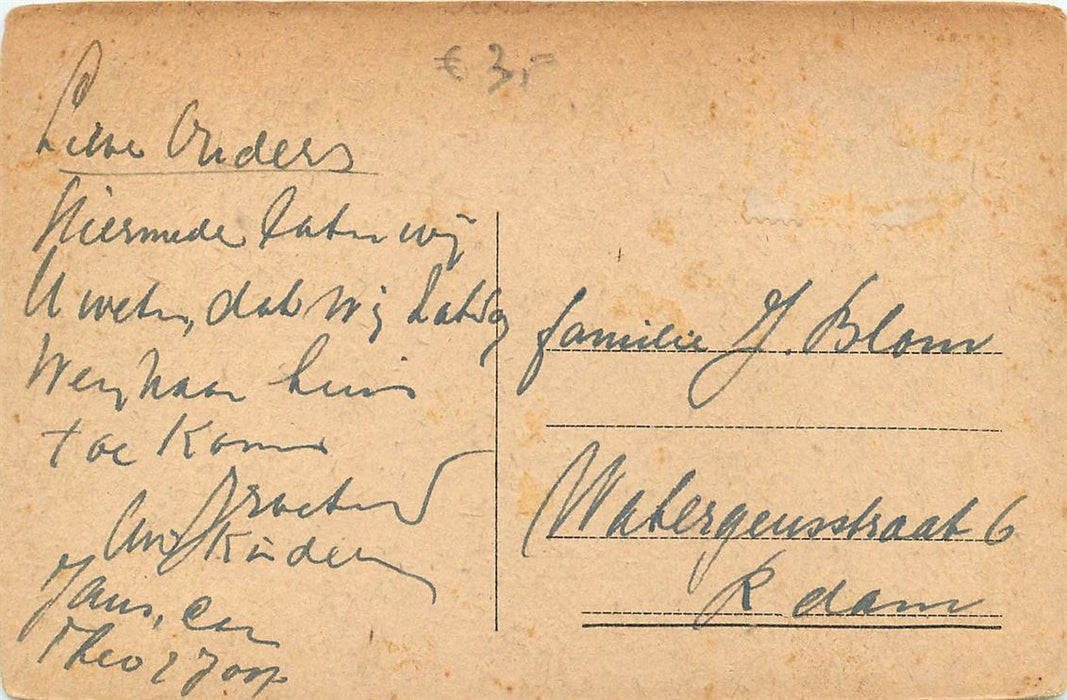 € 3,-
Lieve Ouders
Hiermede laten wij
U weten, dat wij Zaterdag
Weer naar huis
toe Komen
Groeten
Uw Kinderen
Jans, Cor
Theo & Joop
familie J. Blom
Watergeusstraat 6
R dam